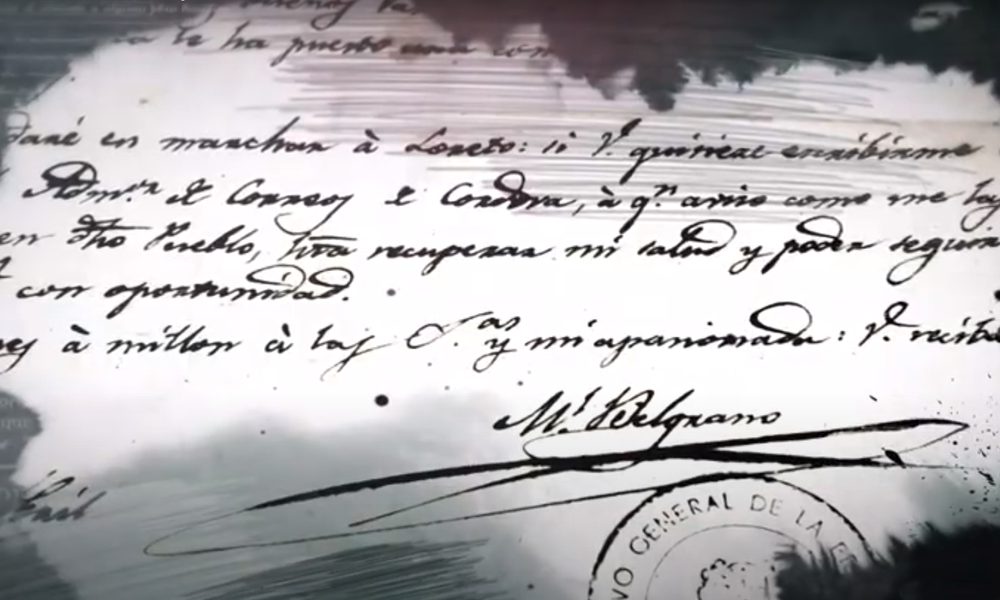 te ha puesto una com
daré en marchar à Loreto: si V. quiniese escribirme
Admor. de Correos de Cordova, à qn. aviso como me
en dho Pueblo, hta recuperar mi salud y poder seguir
con oportunidad.
à millon à las S.as y mi apasionada: V. reciba
Ml. Belgrano
VO GENERAL DE LA